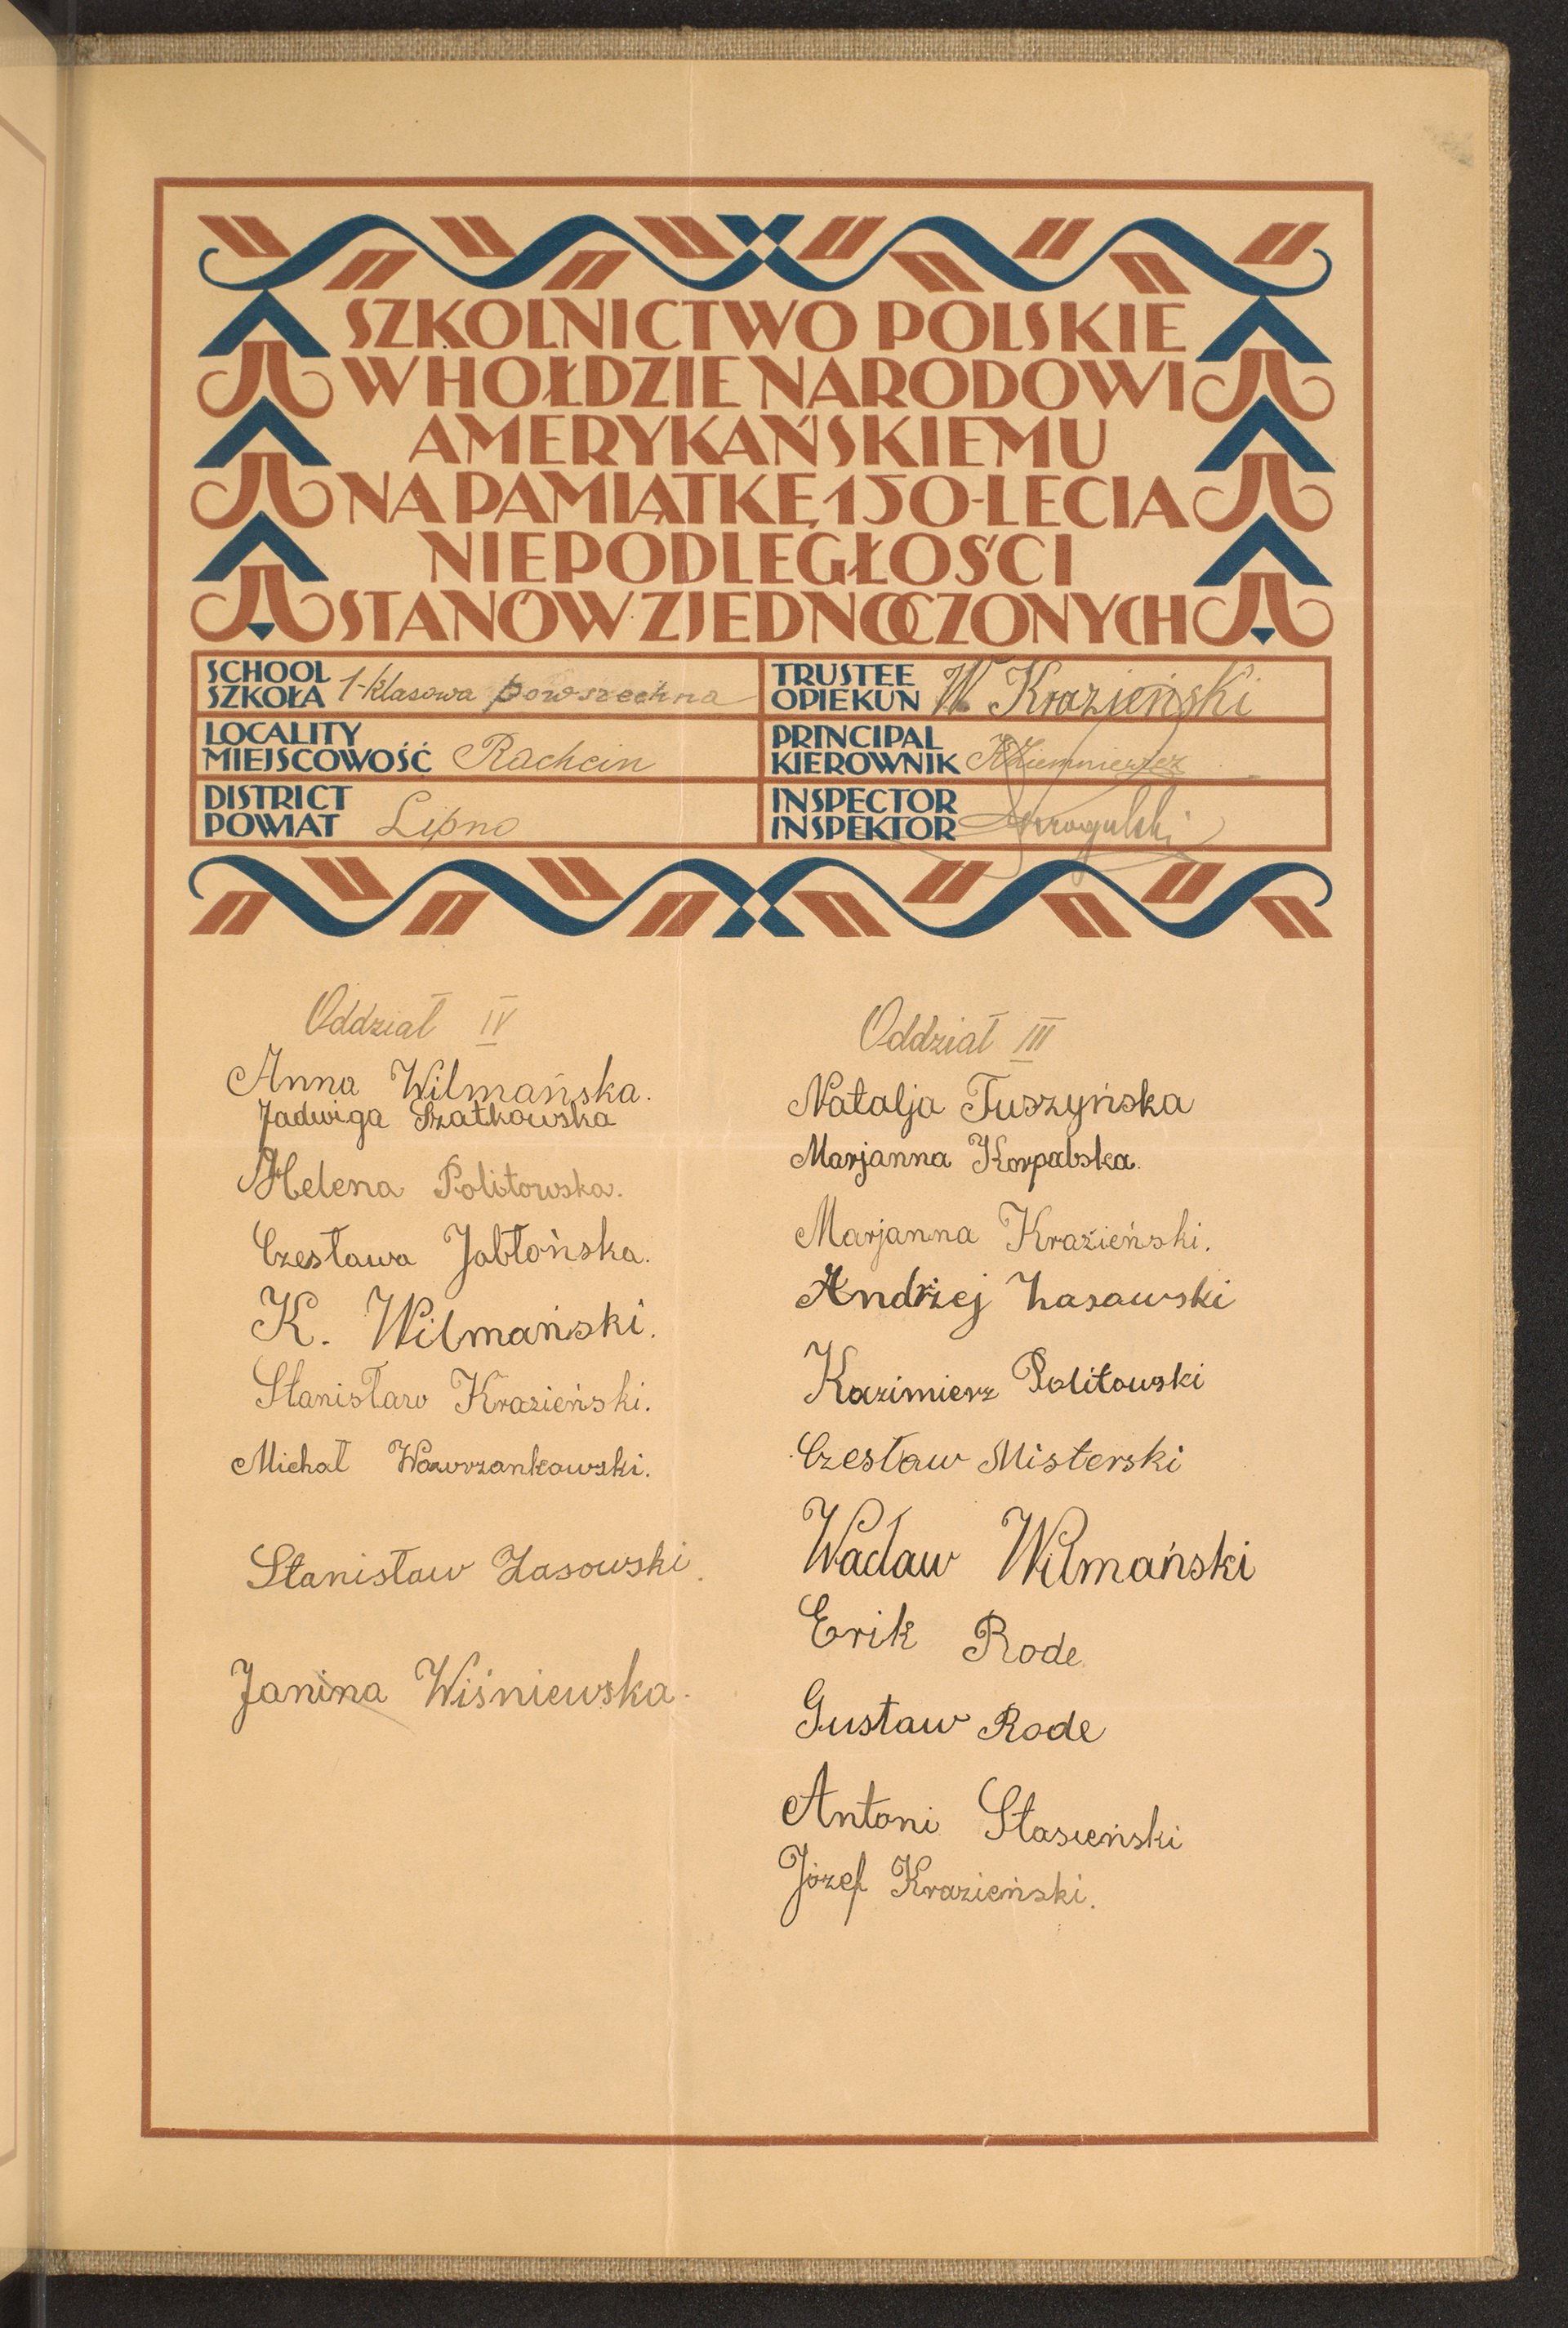 SZKOLNICTWO POLSKIE
W HOŁDZIE NARODOWI
AMERYKAŃSKIEMU
NA PAMIĄTKĘ 150-LECIA
NIEPODLEGŁOŚCI
STANÓW ZJEDNOCZONYCH
SCHOOL
SZKOŁA 1-klasowa powszechna
TRUSTEE
OPIEKUN W. Krazieński
LOCALITY
MIEJSCOWOŚĆ Rachcin
PRINCIPAL
KIEROWNIK
DISTRICT
POWIAT Lipno
INSPECTOR
INSPEKTOR
Oddział IV
Anna Wilmańska.
Jadwiga Szatkowska
Helena Politowska.
Czesława Jabłońska.
K. Wilmański.
Stanisław Krazieński.
Michał Wawrzonkowski.
Stanisław Zasowski.
Janina Wiśniewska.
Oddział III
Natalja Tuszyńska
Marjanna Korpalska.
Marjanna Kraźieński.
Andrzej Zasawski
Kazimierz Politowski
Czesław Misterski
Wacław Wilmański
Erik Rode
Gustaw Rode
Antoni Stasieński
Józef Krazieński.